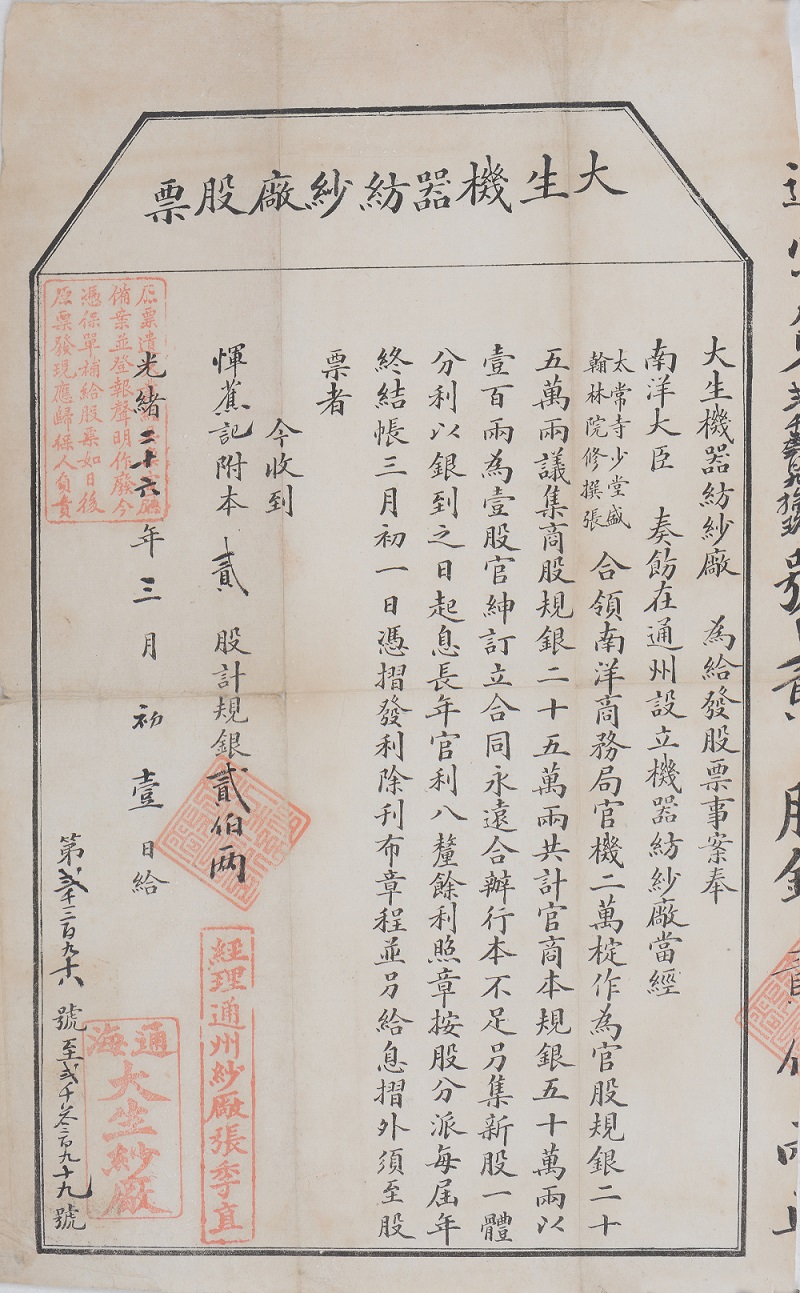 大生機器紡紗廠股票
大生機器紡紗廠 為給發股票事案奉
南洋大臣 奏飭在通州設立機器紡紗廠當經
太常寺少堂盛
翰林院修撰張
合領南洋商務局官機二萬椗作為官股規銀二十
五萬兩議集商股規銀二十五萬兩共計官商本規銀五十萬兩以
壹百兩為壹股官紳訂立合同永遠合辦行本不足另集新股一體
分利以銀到之日起息長年官利八釐餘利照章按股分派每屆年
終結帳三月初一日憑摺發利除刊布章程並另給息摺外須至股
票者
今收到
惲蕉記附本 貳 股計規銀貳伯両
光緒二十六年三月初壹日給
第貳千三百九十八號至貳千叁百九十九號
原票遺
備案並登報聲明作廢今
憑保單補給股票如日後
原票發現應歸保人負責
經理通州紗廠張季直
通海
大生紗廠
號
股銀